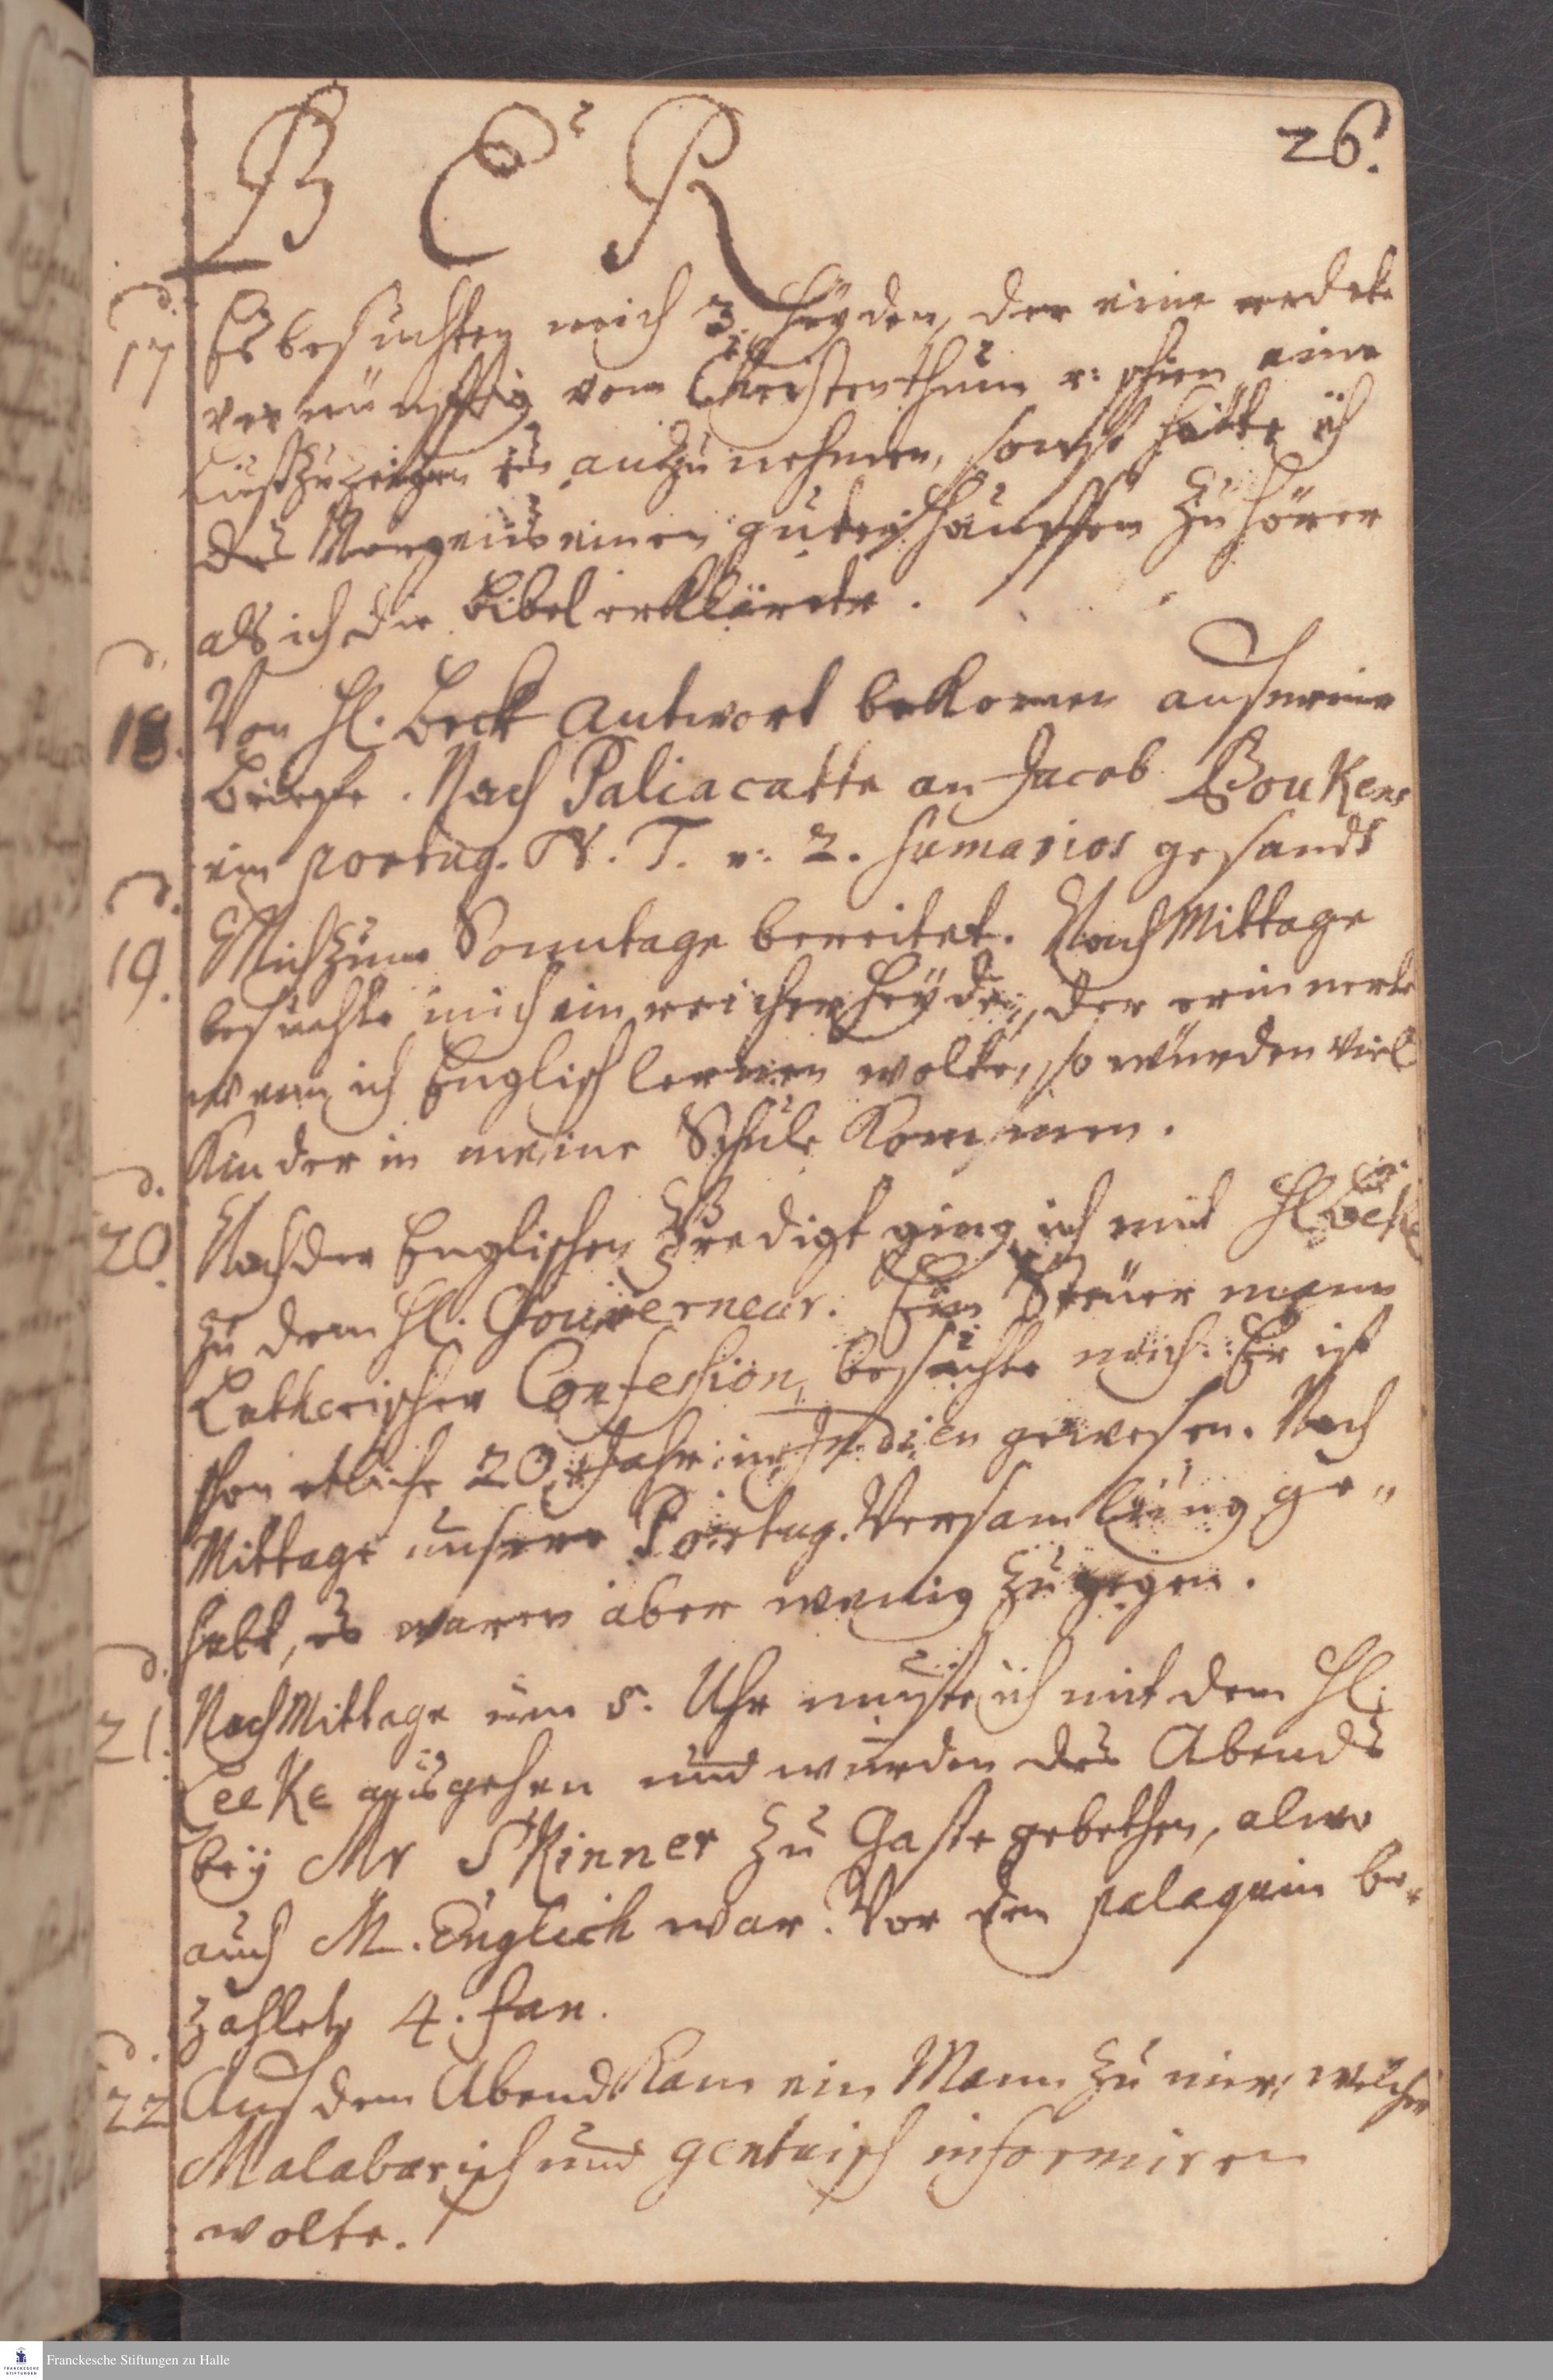 B E R
26.
d. 17 Es besuchten mich 3. Heyden, der eine redete
vernünfftig vom Christenthum u: schien eine
Lust zu zeigen es anzunehmen, sonst hatte ich
des Morgens einen guten Hauffen Zuhörer
als ich die Bibel erklärete.
d. 18. Von H. Beck Antwort bekommen auf meine
Briefe. Nach Paliacatta an Jacob Boukens
ein portug. N. T. u: 2. sumarios gesandt
d. 19. Mich zum Sonntage bereitet. Nach Mittage
besuchte mich ein reicher Heyde, der erinnerte
wenn ich Englisch lernen wolte, so würden viel
Kinder in meine Schule kommen.
d. 20. Nach der Englischen Predigt ging ich mit H.
zu dem H. Gouverneur. Ein Steuermann
Lutherischer Confession, besuchte mich. Er ist
schon etliche 20. Jahr in Indien gewesen. Nach
Mittage unsere Portug. Versamlung ge-
habt, es waren aber wenig zugegen.
d. 21. Nach Mittage um 5. Uhr muste ich mit dem H.
Leeke ausgehen und wurden des Abends
bey Mr Skinner zu Gaste gebethen, alwo
auch M. Englich war. Vor den palaquin be-
zahlete 4. fan.
d. 22 Auf dem Abend kam ein Mann zu mir, welcher
Malabarisch und gentuisch informiren
wolte.
Franckesche Stiftungen zu Halle